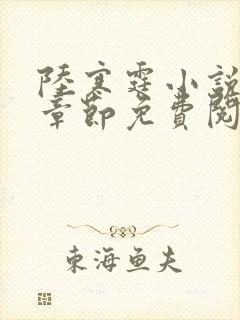 陸寒霆小說
章節免費閱
東海魚夫